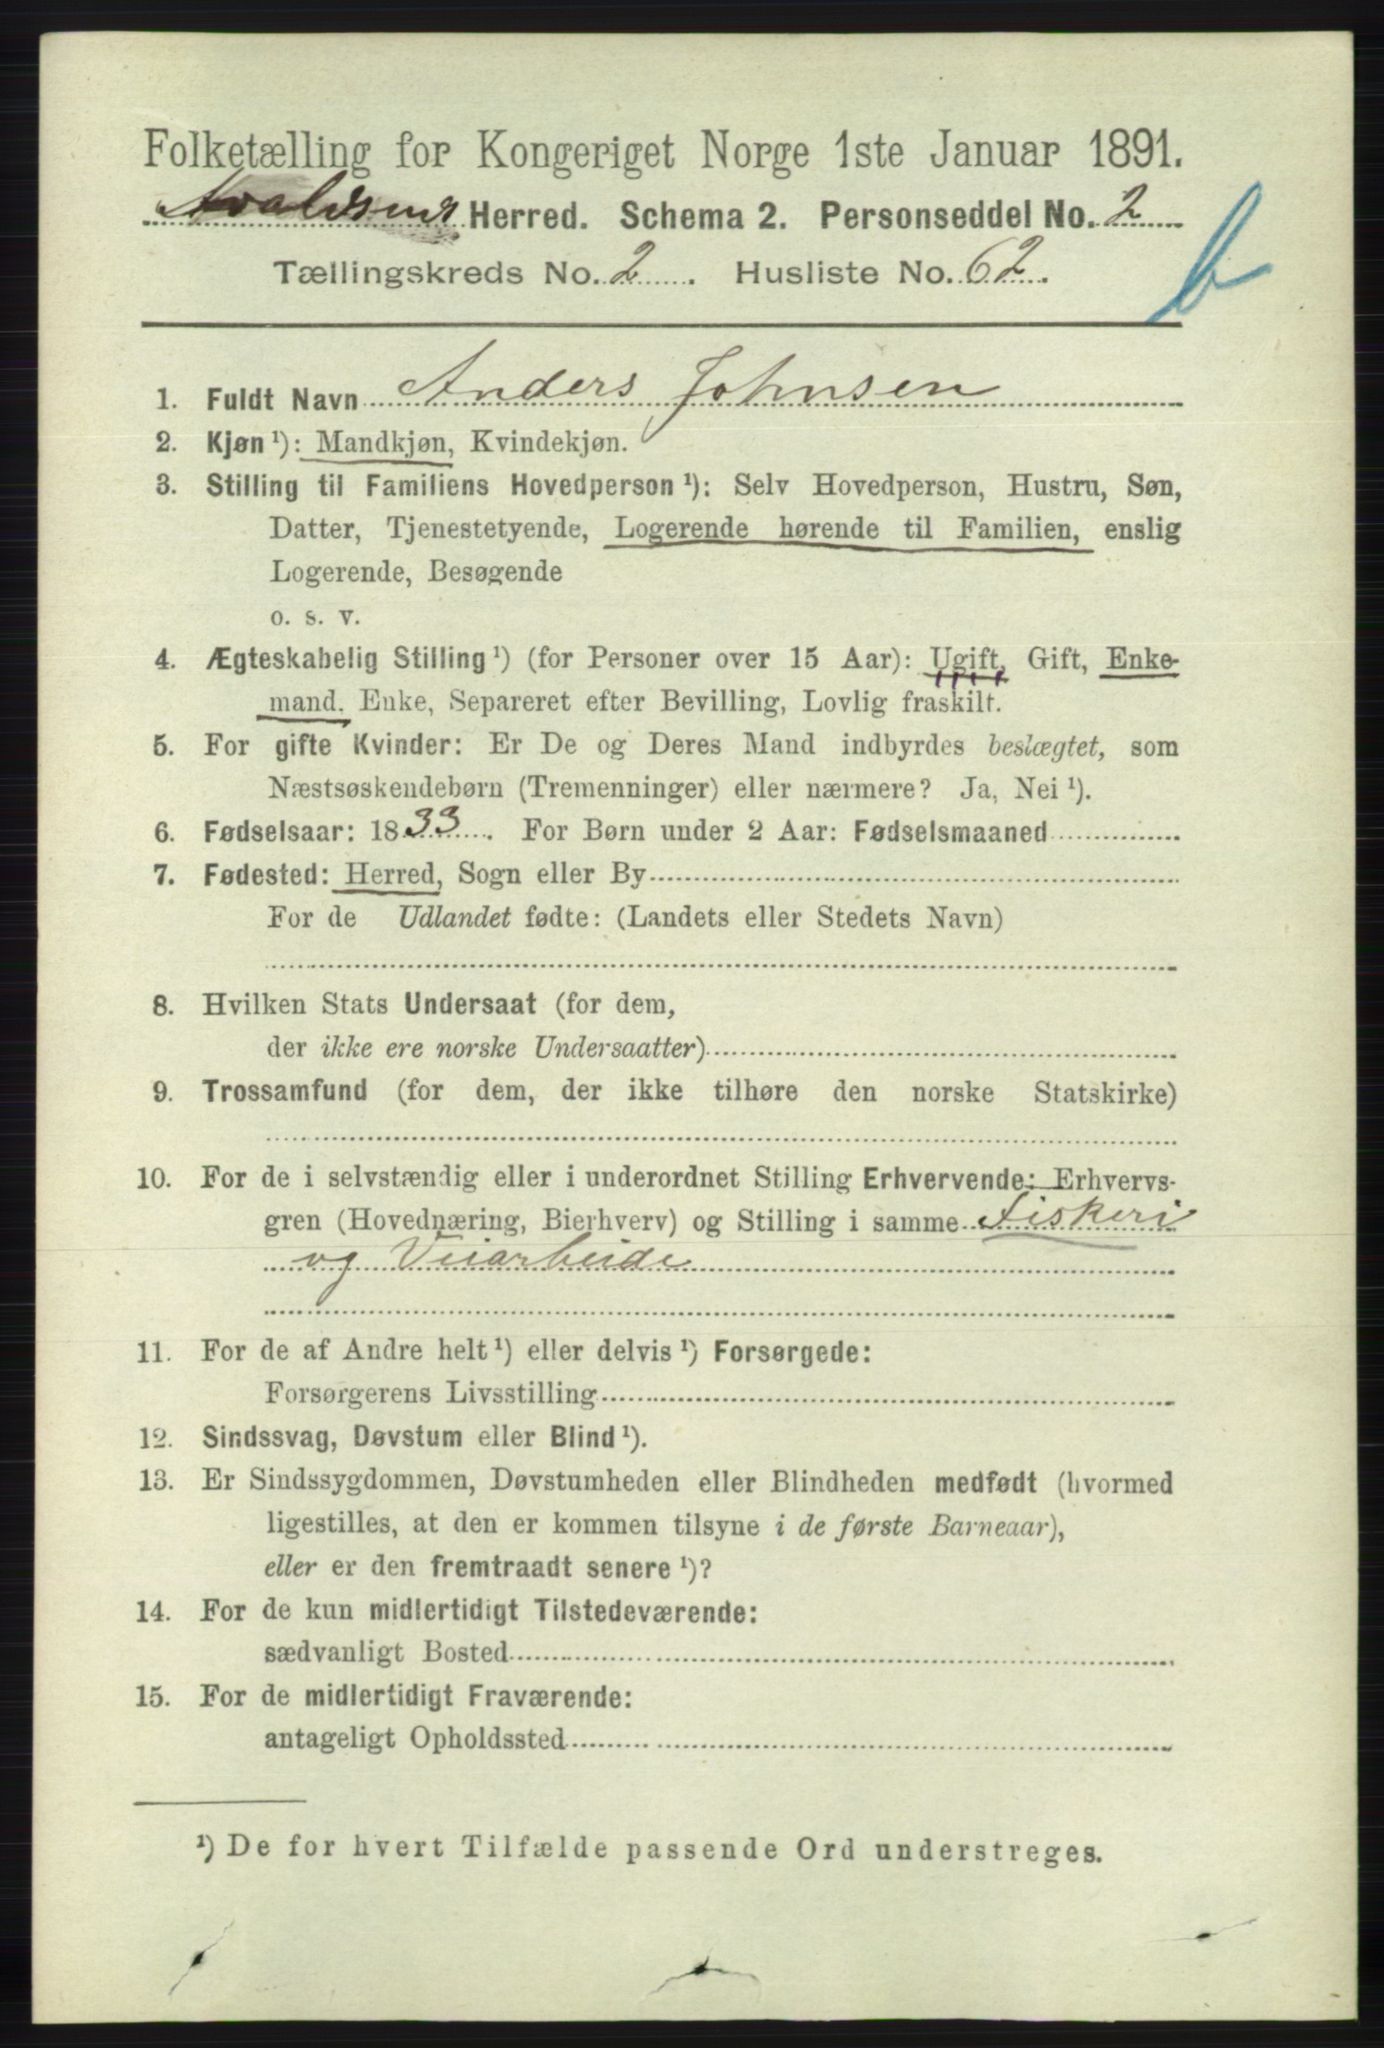 Folketælling for Kongeriget Norge 1ste Januar 1891.
Avaldsnes Herred. Schema 2. Personseddel No. 2
Tællingskreds No. 2. Husliste No. 62.
b
1. Fuldt Navn Anders Johnsen
2. Kjøn ¹): Mandkjøn, Kvindekjøn.
3. Stilling til Familiens Hovedperson ¹): Selv Hovedperson, Hustru, Søn,
Datter, Tjenestetyende, Logerende hørende til Familien, enslig
Logerende, Besøgende
o. s. v.
4. Ægteskabelig Stilling ¹) (for Personer over 15 Aar): Ugift, Gift, Enke-
mand, Enke, Separeret efter Bevilling, Lovlig fraskilt.
5. For gifte Kvinder: Er De og Deres Mand indbyrdes beslægtet, som
Næstsøskendebørn (Tremenninger) eller nærmere? Ja, Nei ¹).
6. Fødselsaar: 1833. For Børn under 2 Aar: Fødselsmaaned
7. Fødested: Herred, Sogn eller By
For de Udlandet fødte: (Landets eller Stedets Navn)
8. Hvilken Stats Undersaat (for dem,
der ikke ere norske Undersaatter)
9. Trossamfund (for dem, der ikke tilhøre den norske Statskirke)
10. For de i selvstændig eller i underordnet Stilling Erhvervende: Erhvervs-
gren (Hovednæring, Bierhverv) og Stilling i samme Fiskeri
og Veiarbeide
11. For de af Andre helt ¹) eller delvis ¹) Forsørgede:
Forsørgerens Livsstilling
12. Sindssvag, Døvstum eller Blind ¹).
13. Er Sindssygdommen, Døvstumheden eller Blindheden medfødt (hvormed
ligestilles, at den er kommen tilsyne i de første Barneaar),
eller er den fremtraadt senere ¹)?
14. For de kun midlertidigt Tilstedeværende:
sædvanligt Bosted
15. For de midlertidigt Fraværende:
antageligt Opholdssted
¹) De for hvert Tilfælde passende Ord understreges.